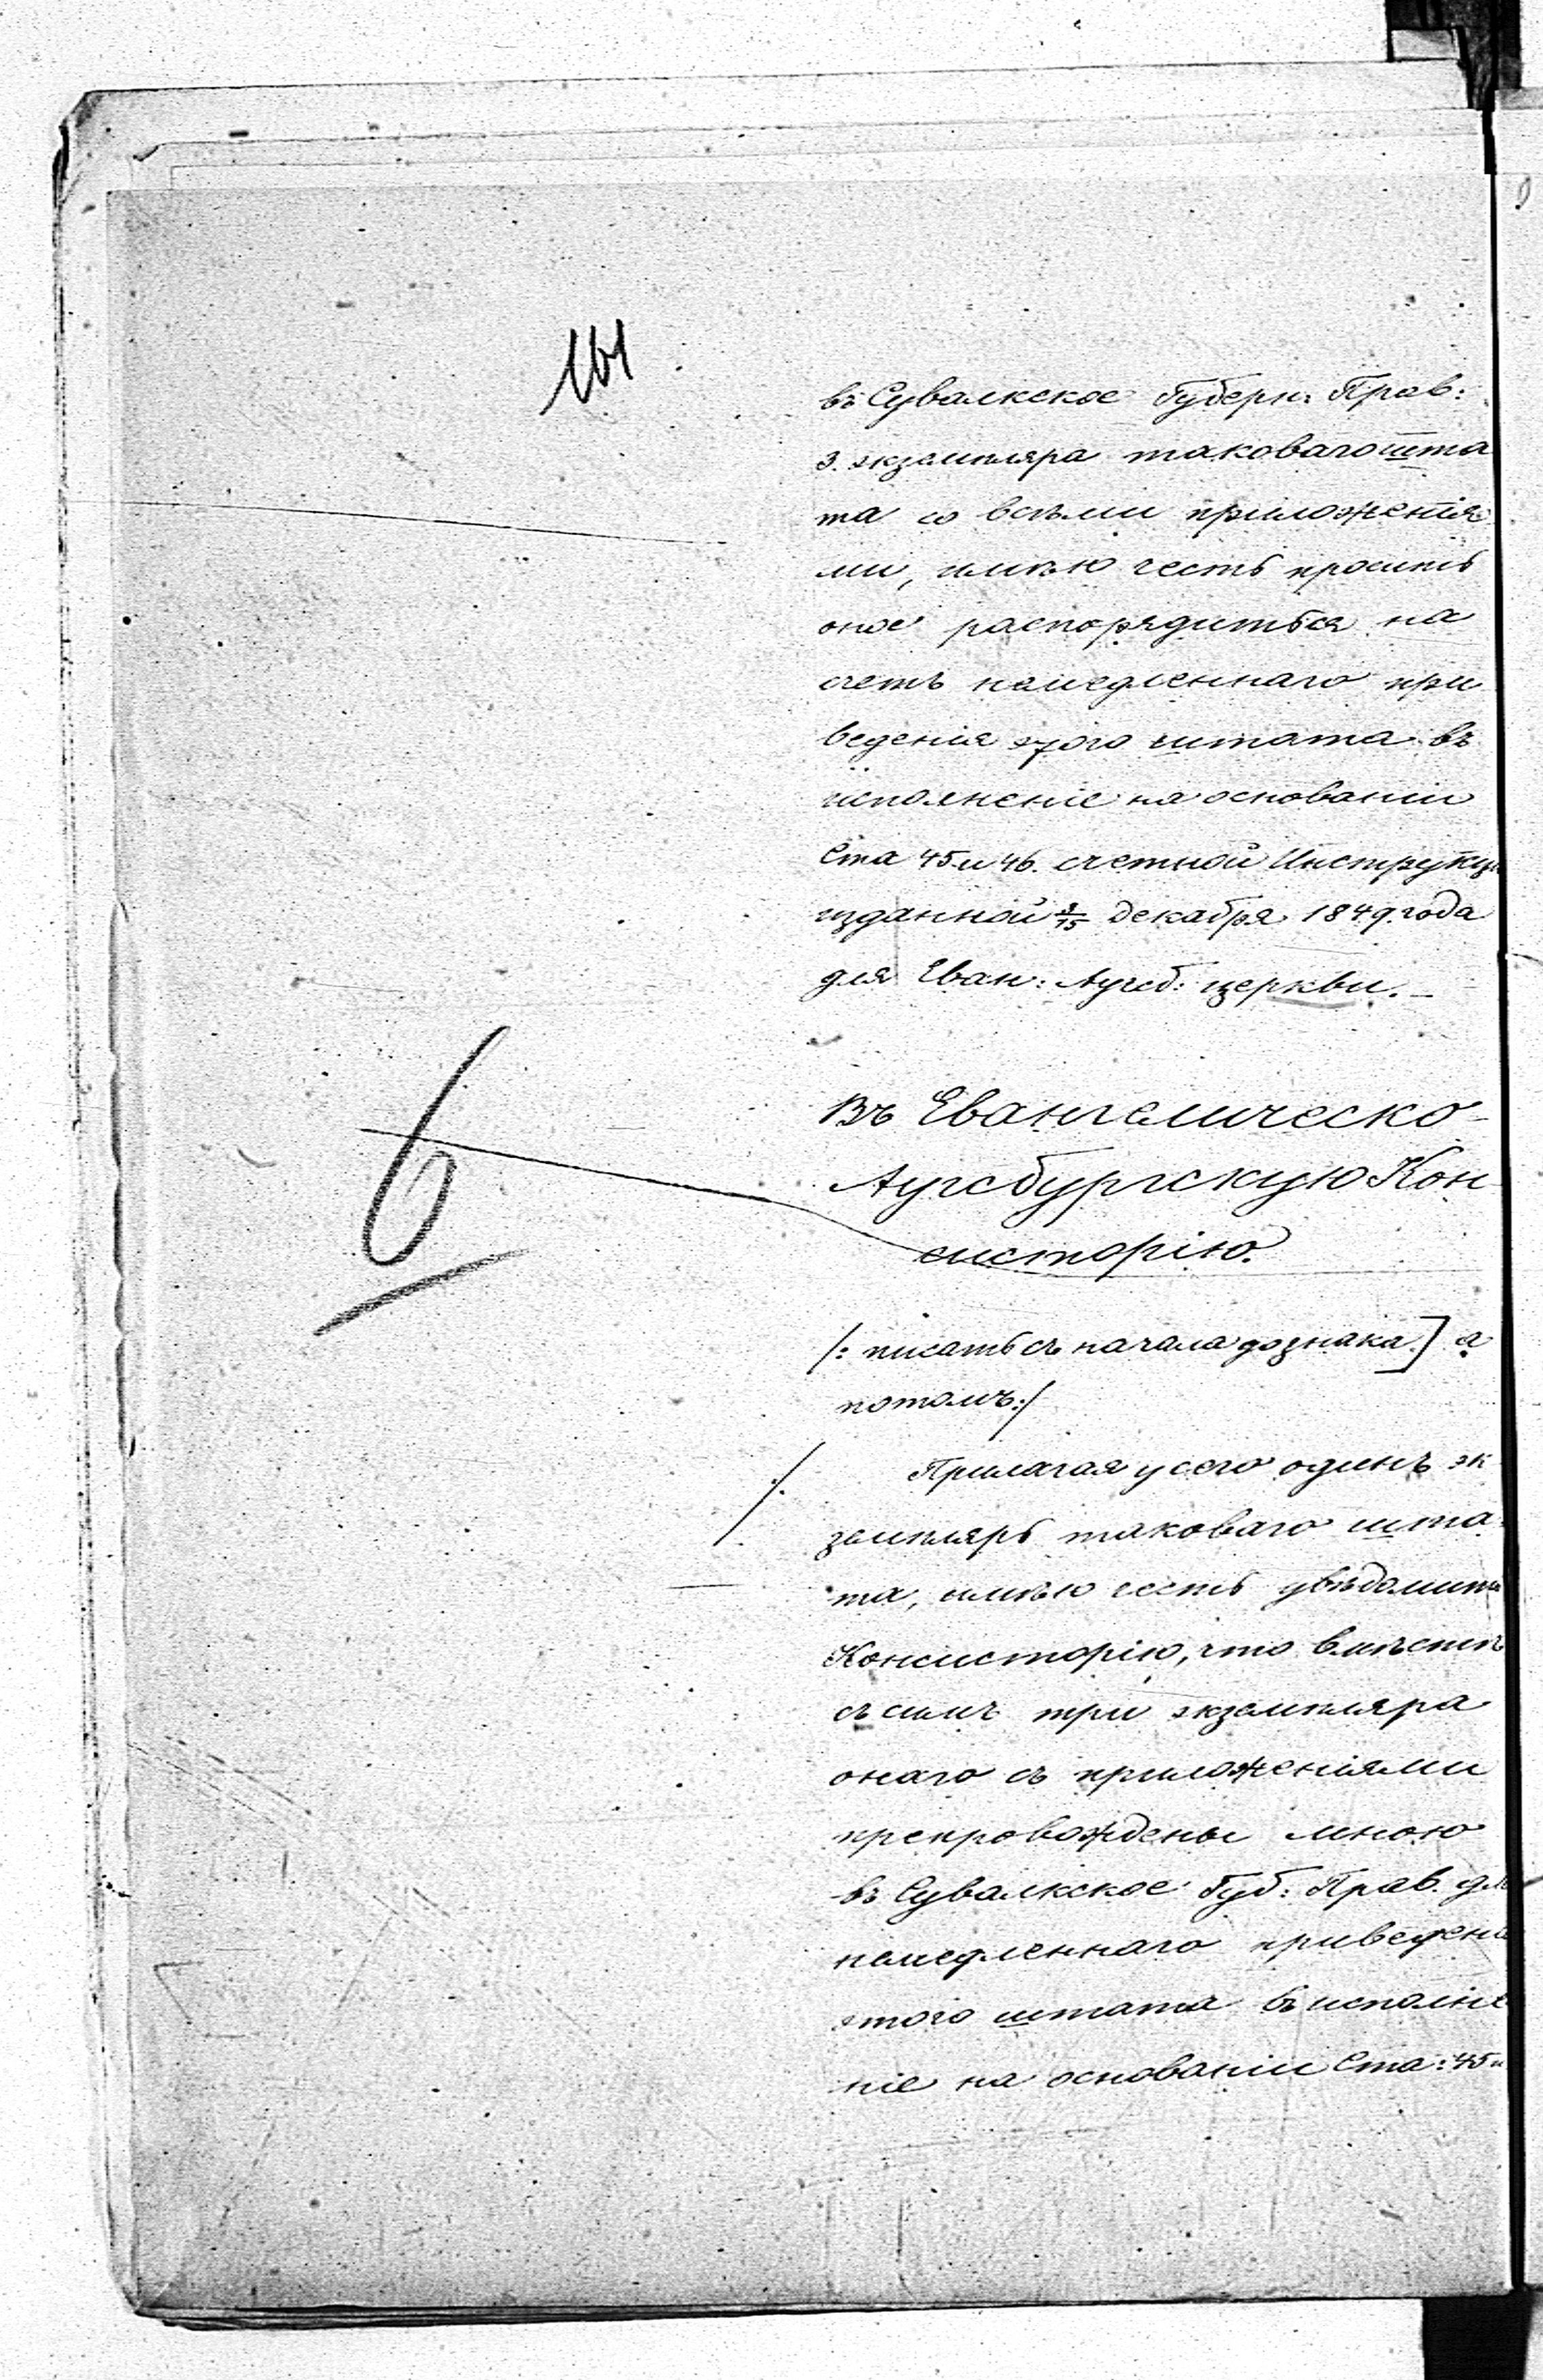 161
въ Сувалкское Губерн: Прав:
3. экземпляра таковаго шта
та со всѣми приложенія
ми, имѣю честь просить
оное распорядиться на
счетъ немедленнаго при
веденія этого штата въ
исполненіе на основаніи
Ста 45 и 46. счетной Инструкци
изданной 3/15 Декабря 1849. года
для Еван: Аугсб: церкви.
6
Въ Евангелическо-
Аугсбургскую Кон
систорію.
/: писать съ начала до знака ] а
потомъ:/
Прилагая у сего одинъ эк
земпляръ таковаго шта
та, имѣю честь увѣдомить
Консисторію, что вмѣстѣ
съ симъ три экземпляра
онаго съ приложеніями
препровождены мною
въ Сувалкское Губ: Прав. для
немедленнаго приведені
этого штата въ исполне
ніе на основаніи Ста: 45 и